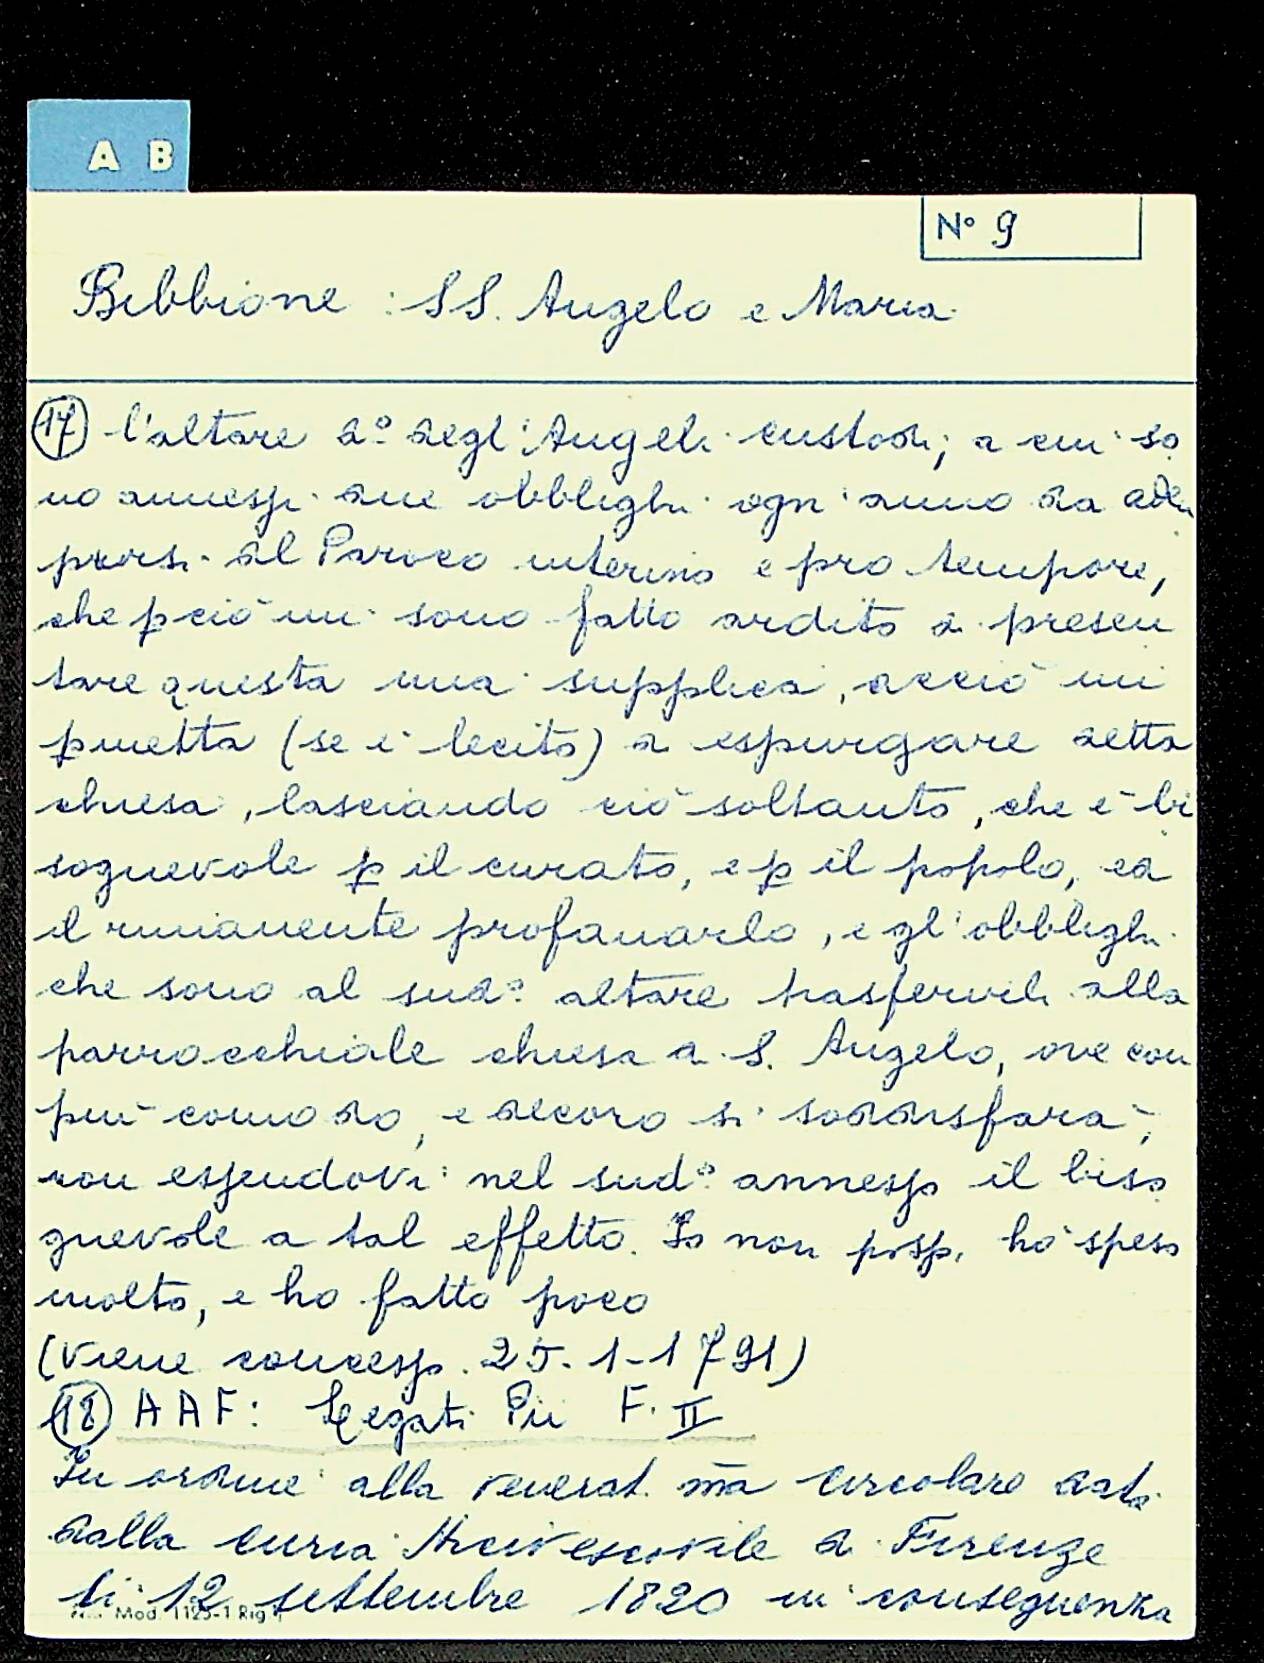 A B
N° 9
Bibbione : SS. Angelo e Maria
(17) l'altare d.° degl'Angeli custodi; a cui so
no annessi due obblighi ogni anno da adem
piersi dal Paroco interino e pro tempore,
che p ciò mi sono fatto ardito di presen
tare questa mia supplica, acciò mi
pmetta (se è lecito) di espurgare detta
chiesa, lasciando ciò soltanto, che è bi
sognevole p il curato, e p il popolo, ed
il rimanente profanarlo, e gl'obblighi
che sono al sud° altare trasferirli alla
parrocchiale chiesa di S. Angelo, ove con
più comodo, e decoro si soddisfarà,
non essendovi nel sud° annesso il biso
gnevole a tal effetto. Io non posso, ho speso
molto, e ho fatto poco
(viene concesso 25-1-1791)
(18) AAF: Legati Pii F. II
In ordine alla venerat. ma circolare data
dalla curia Arcivescovile di Firenze
li 12 settembre 1820 in conseguenza
Mod. 1125-1 Rig